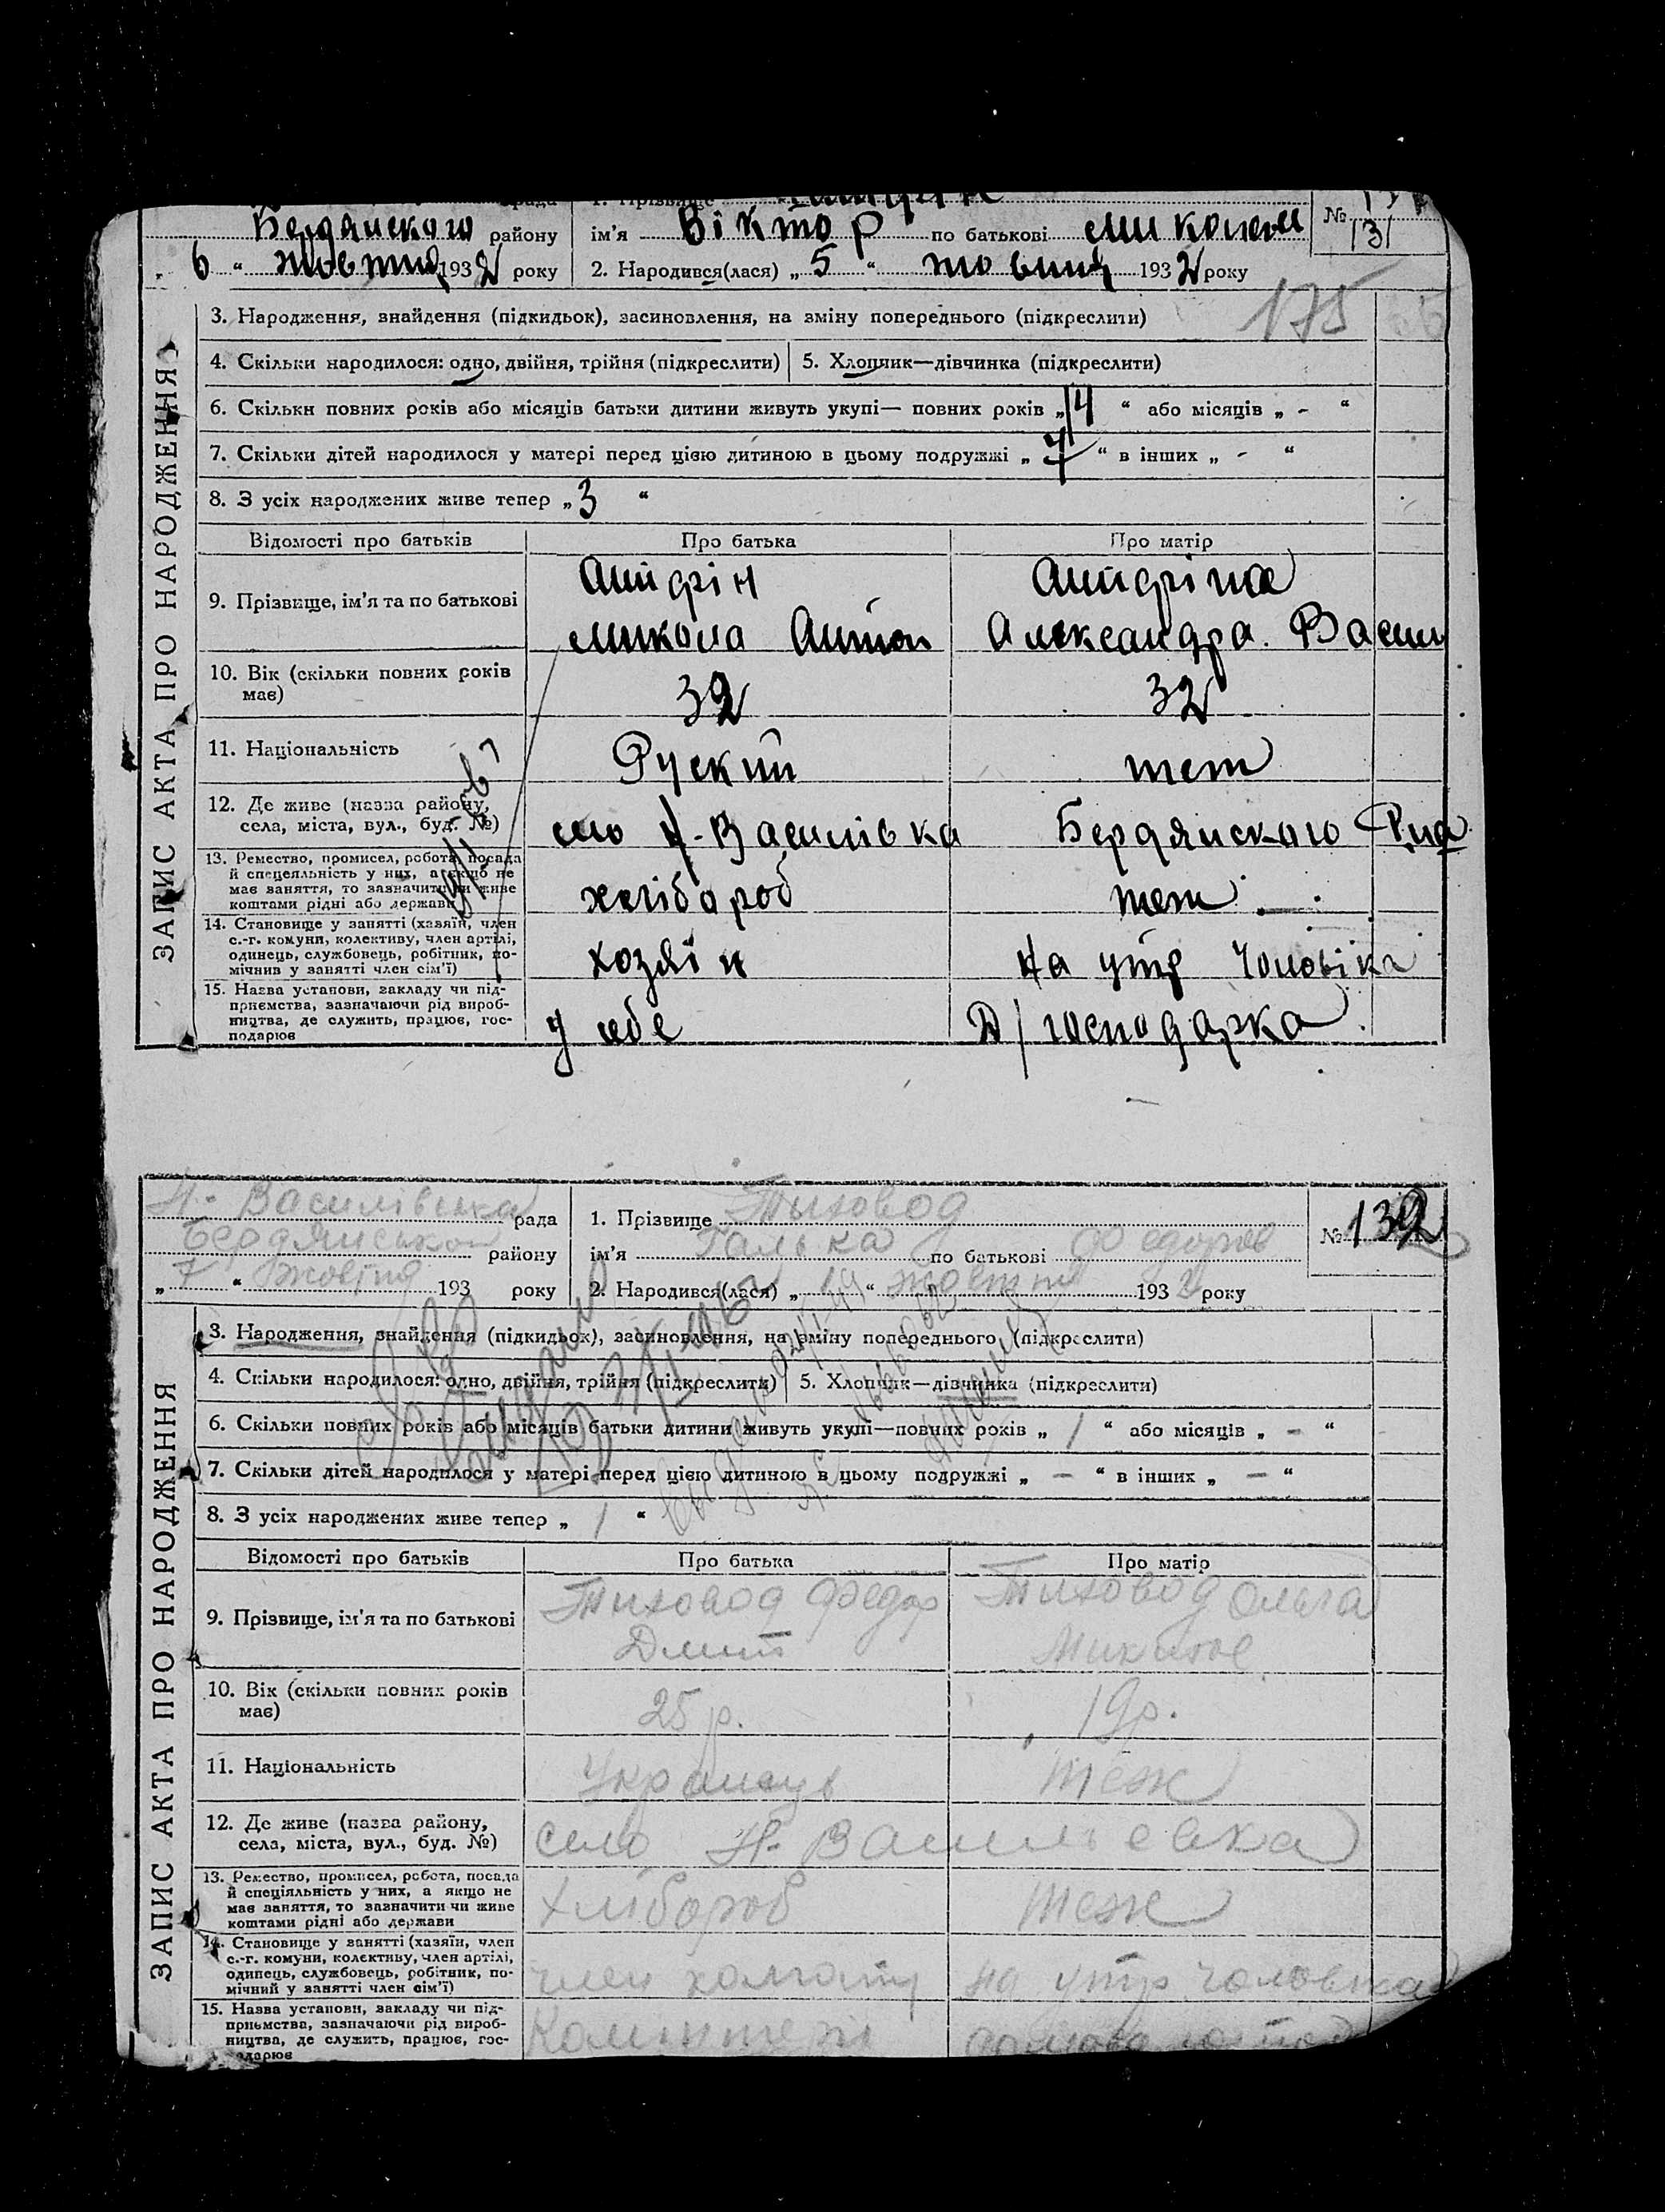 Бердянского району
ім'я Віктор по батькові Миколаєв
№ 131
„ 6 “ жовтня 1932 року
2. Народився(лася) „ 5 “ жовтня 1932 року
175
ЗАПИС АКТА ПРО НАРОДЖЕННЯ
3. Народження, знайдення (підкидьок), засиновлення, на зміну попереднього (підкреслити)
4. Скільки народилося: одно, двійня, трійня (підкреслити) 5. Хлопчик—дівчинка (підкреслити)
6. Скільки повних років або місяців батьки дитини живуть укупі— повних років „14 “ або місяців „ - “
7. Скільки дітей народилося у матері перед цією дитиною в цьому подружжі „ 4 “ в інших „ - “
8. З усіх народжених живе тепер „3 “
Відомості про батьків Про батька Про матір
9. Прізвище, ім'я та по батькові
Микола Антон Александра Васил
10. Вік (скільки повних років має) 32 32
11. Національність Руский теж
12. Де живе (назва району, села, міста, вул., буд. №) село Н-Василівка Бердянского Р-на
13. Ремество, промисел, робота, посада й спецеяльність у них, а якщо не має заняття, то зазначити чи живе коштами рідні або держави хлібороб теж
14. Становище у занятті (хазяїн, член с.-г. комуни, колективу, член артілі, одинець, службовець, робітник, помічнив у занятті член сім'ї) хозяін на утр Чоловіка
15. Назва установи, закладу чи підприємства, зазначаючи рід виробництва, де служить, працює, господарює у себе Д/господарка
Н-Василівська рада
1. Прізвище Тыховод
№ 132
Бердянський району
ім'я Галька по батькові Федоров
„ 7 “ Жовтня 193 року
2. Народився(лася) „ “ жовтня 1932 року
ЗАПИС АКТА ПРО НАРОДЖЕННЯ
3. Народження, знайдення (підкидьок), засиновлення, на зміну попереднього (підкреслити)
4. Скільки народилося: одно, двійня, трійня (підкреслити) 5. Хлопчик—дівчинка (підкреслити)
6. Скільки повних років або місяців батьки дитини живуть укупі—повних років „ 1 “ або місяців „ – “
7. Скільки дітей народилося у матері перед цією дитиною в цьому подружжі „ — “ в інших „ — “
8. З усіх народжених живе тепер „ 1 “
Відомості про батьків Про батька Про матір
9. Прізвище, ім'я та по батькові Тиховод Федор Тиховод Ольга
Дмит Микитов
10. Вік (скільки повних років має) 25 р. 19р.
11. Національність Українець теж
12. Де живе (назва району, села, міста, вул., буд. №) село Н-Васильевка
13. Ремество, промисел, робота, посада й спеціяльність у них, а якщо не має заняття, то зазначити чи живе коштами рідні або держави хлібороб теж
14. Становище у занятті (хазяїн, член с.-г. комуни, колективу, член артілі, одинець, службовець, робітник, помічний у занятті член сім'ї) член колгоспу на утр. чоловіка
15. Назва установи, закладу чи підприємства, зазначаючи рід виробництва, де служить, працює, господарює